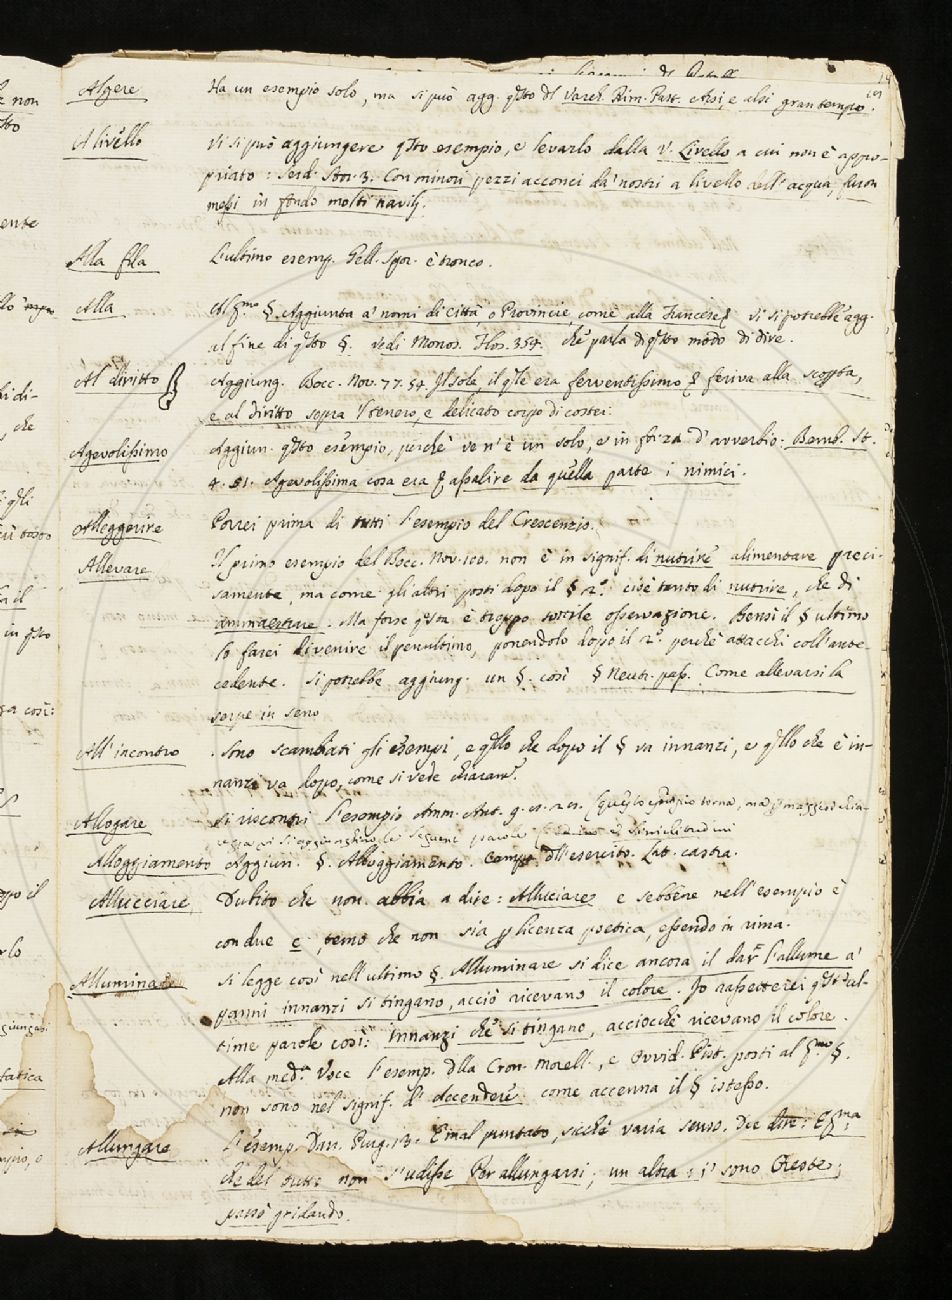 Algere Ha un esempio solo, ma si può agg. qsto dl Varch. Rim. Past. Arsi, e alsi gran tempo.
A livello Vi si può aggiungere qsto esempio, e levarlo dalla v. Livello a cui non è appro-
priato: Serd. Stor. 3. Con minori pezzi acconci da' nostri a livello dell' acqua, furon
messi in fondo molti navilj.
Alla fila L'ultimo esemp. è tronco.
Alla Al §. Aggiunta a' nomi di Città, o Provincie, come alla Francese vi si potrebbe agg.
al fine di qsto §. vedi Monos. Flos. 354. che parla di qsto modo di dire.
Al diritto Aggiung. Bocc. Nov. 77. 54. Il sole, il qle era ferventissimo feriva alla scopta,
e al diritto sopra 'l tenero, e delicato corpo di costei.
Agevolissimo Aggiun. qsto esempio, perchè ve n'è un solo, e in forza d'avverbio: Bemb. St.
4. 51. Agevolissima cosa era assalire da quella parte i nimici.
Alleggerire Porrei prima di tutti l'esempio del Crescenzio.
Allevare Il primo esempio del Bocc. Nov. 100. non è in signif. di nutrire alimentare preci-
samente, ma come gli altri posti dopo il § 2º cioè tanto di nutrire, che di
ammaestrare. Ma forse qsta è troppo sottile osservazione. Bensì il § ultimo
lo farei divenire il penultimo, ponendolo dopo il 2º perchè attacchi coll' ante-
cedente. Si potrebbe aggiung. un §. così § Neutr. pass. Come allevarsi la
serpe in seno
All' incontro Sono scambiati gli esempi, e qllo che dopo il § va innanzi, e qllo che è in-
nanzi va dopo, come si vede chiaram.
Allogare Si riscontri l'esempio Amm. Ant. 9. (Questo esempio torna, ma maggior chia-
rezza vi si aggiunghino le seguenti parole similitudini
Alloggiamento Aggiun. §. Alloggiamento. Campo dll' esercito. Lat. castra.
Allucciare Dubito che non abbia a dire: Alluciare e sebbene nell' esempio è
con due c, temo che non sia licenza poetica, essendo in rima.
Alluminare Si legge così nell' ultimo §. Alluminare si dice ancora il dar l'allume a'
panni innanzi si tingano, acciò ricevano il colore. Io rassetterei qste ul-
time parole così: innanzi che si tingano, acciocchè ricevano il colore.
Alla med.ª Voce l'esemp. dlla Cron. Morell., e Ovvid. Pist. posti al §.
non sono nel signif. di accendere come accenna il § istesso.
Allungare L'esemp. Dan. Purg. 13. È mal puntato, sicchè varia senso. Dee dire: E
che del tutto non s'udisse Per allungarsi, un altra: i' sono Oreste,
passò gridando.